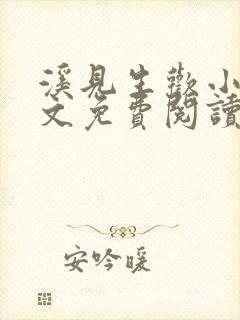 溪見生歡小
文免費閱讀
安吟暖